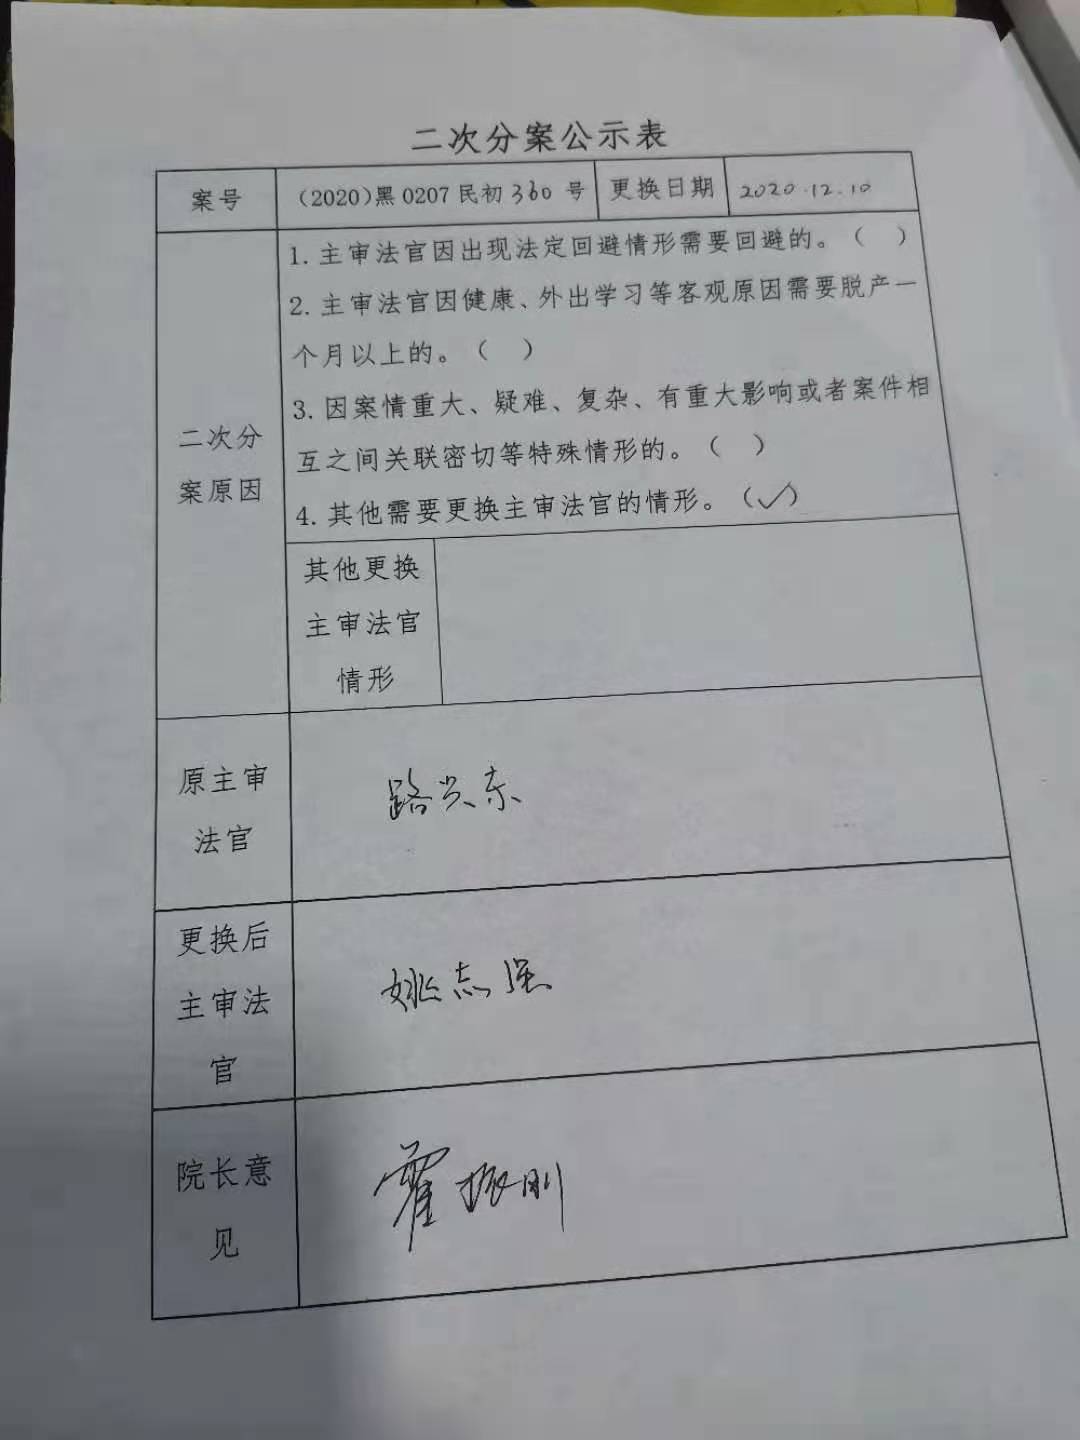 二次分案公示表
案号 (2020)黑0207民初360号 更换日期 2020.12.10
1.主审法官因出现法定回避情形需要回避的。（ ）
2.主审法官因健康、外出学习等客观原因需要脱产一
个月以上的。（ ）
3.因案情重大、疑难、复杂、有重大影响或者案件相
互之间关联密切等特殊情形的。（ ）
4.其他需要更换主审法官的情形。（✓）
二次分
案原因
其他更换
主审法官
情形
原主审
法官
路兴东
更换后
主审法
官
姚志强
院长意
见
霍振刚